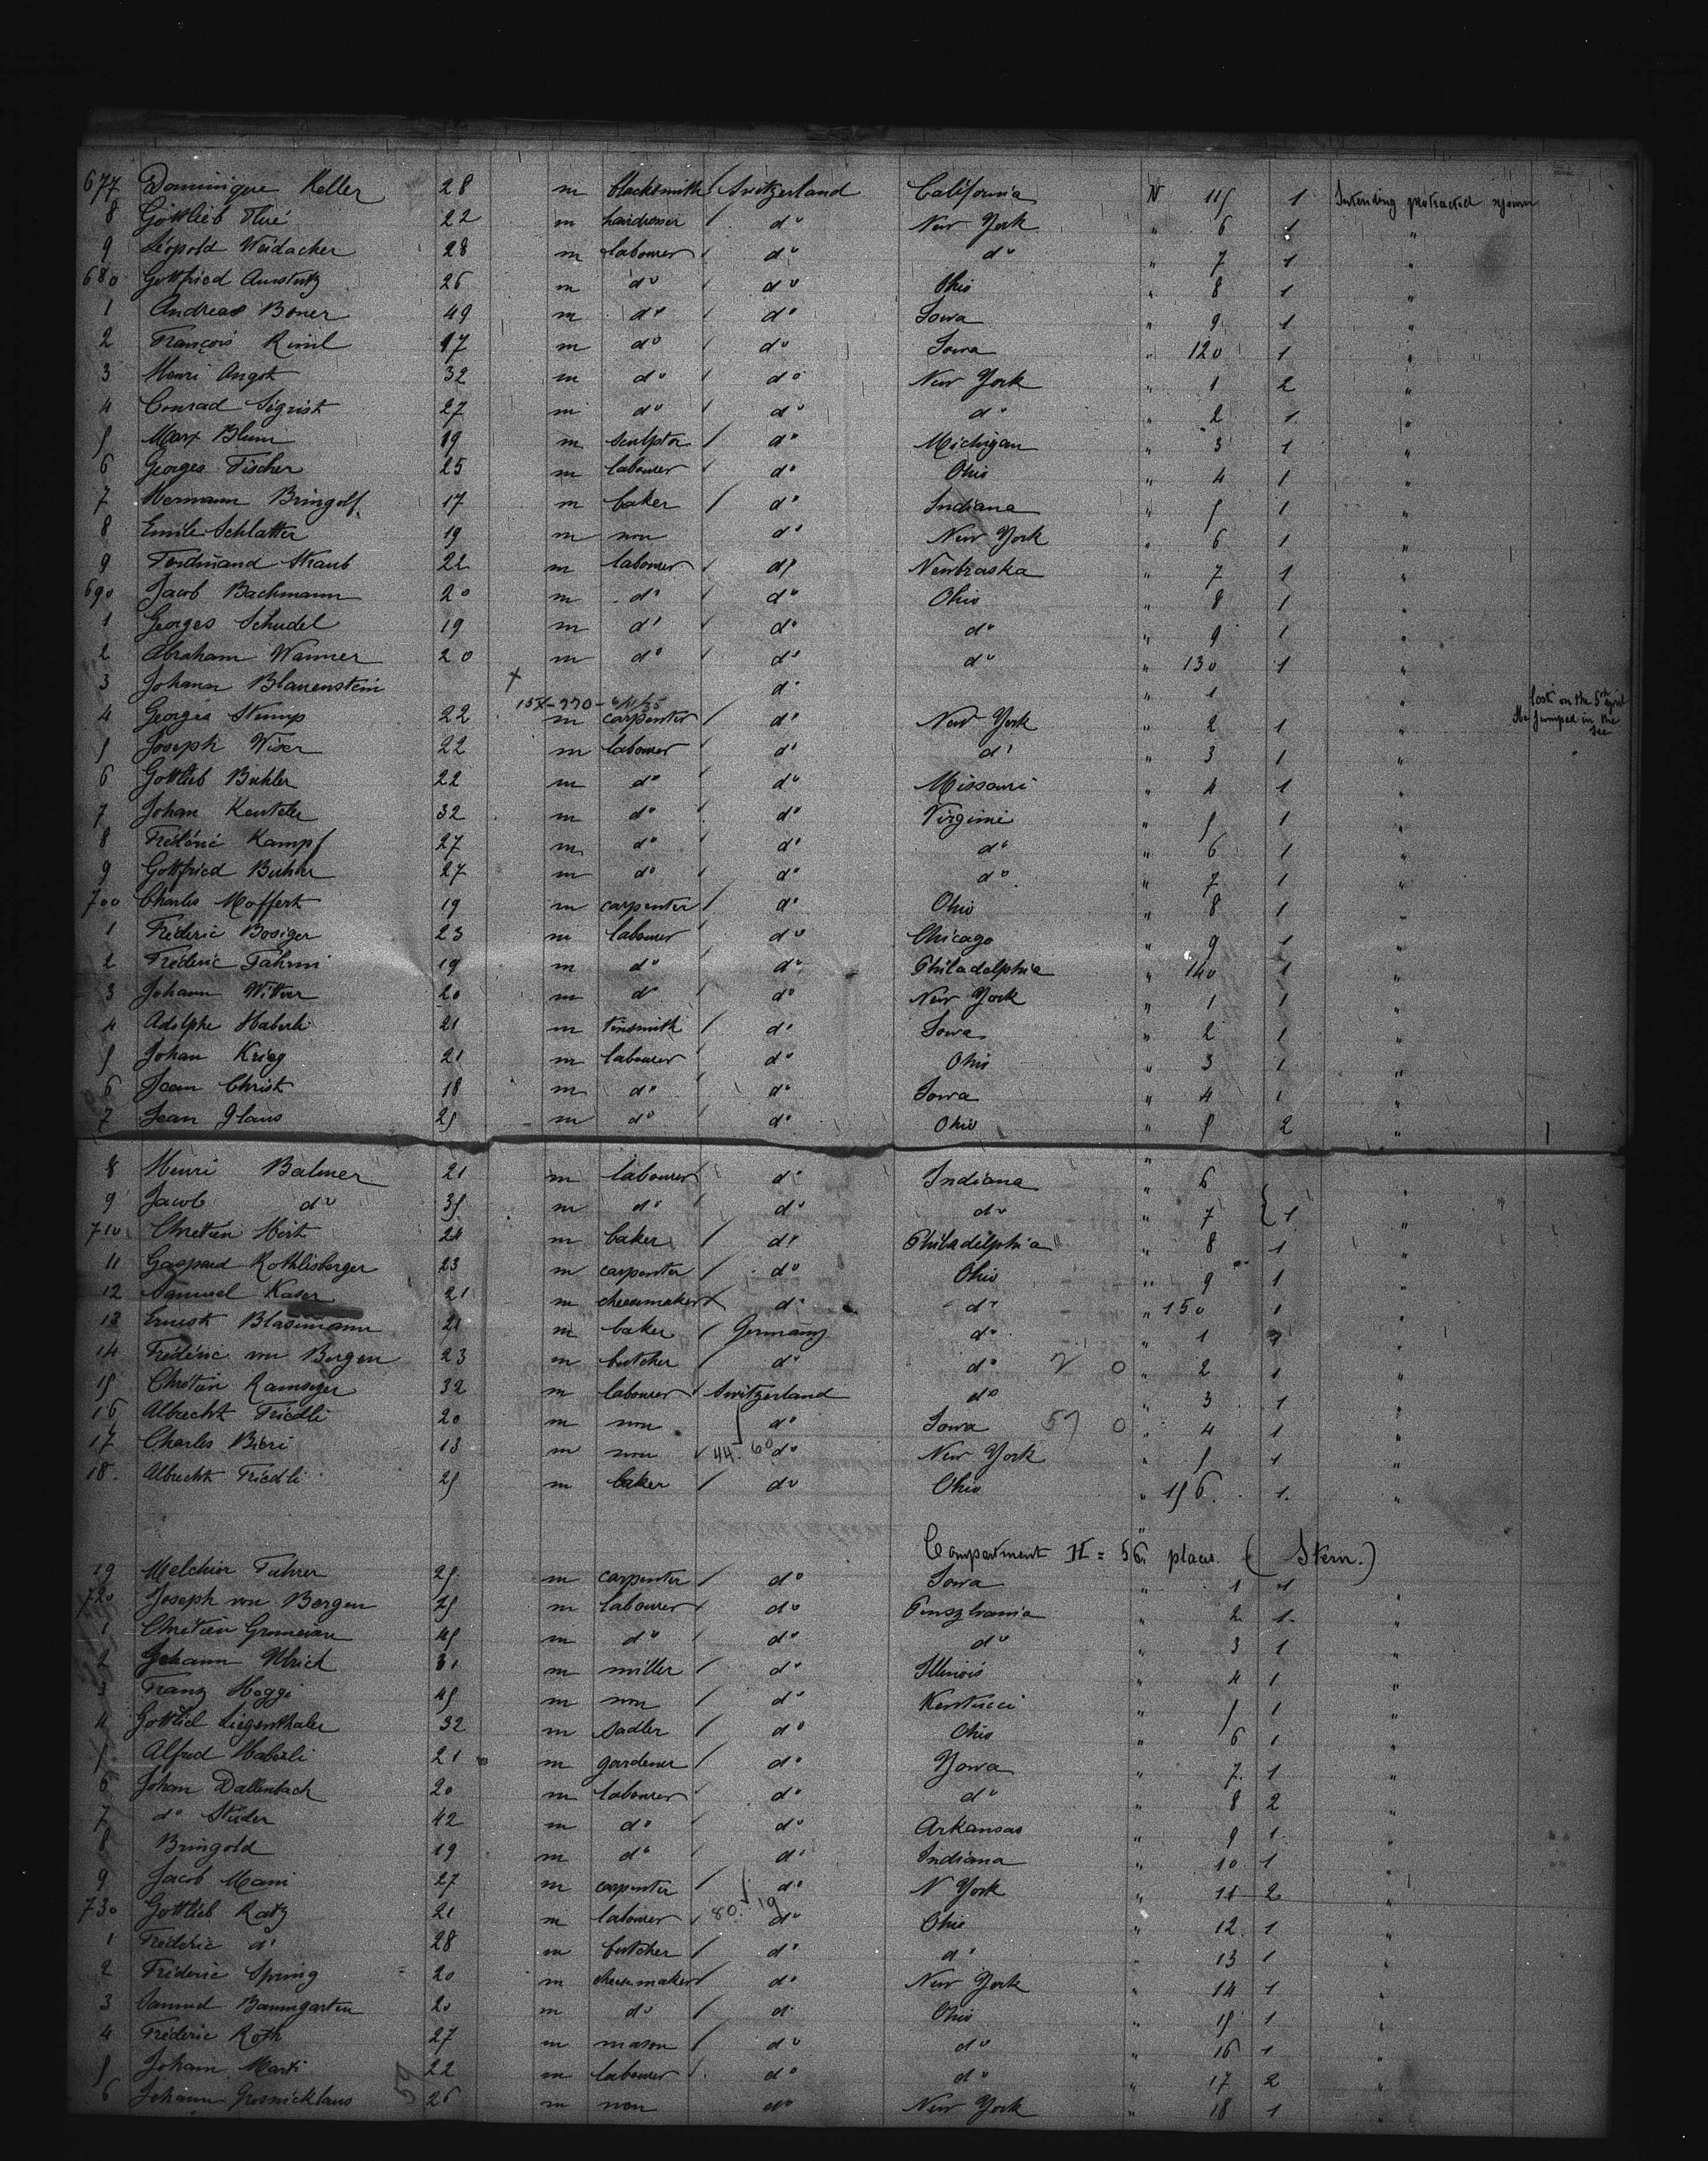 677 Dominique Keller 28 m blacksmith / Switzerland California N 115 1 Intending protracted sejourn
8 Gottlieb Flué 22 m hairdresser / do New York " 6 1 "
9 Léopold Weidacker 28 m labourer / do do " 7 1 "
680 Gottfried Amstutz 26 m do / do Ohio " 8 1 "
1 Andreas Boner 49 m do / do Iowa " 9 1 "
2 François 17 m do / do Iowa " 120 1 "
3 Henri Angst 32 m do / do New York " 1 2 "
4 Conrad Sigrist 27 m do / do do " 2 1 "
5 Marx Blum 19 m sculptor / do Michigan " 3 1 "
6 Georges Fischer 25 m labourer / do Ohio " 4 1 "
7 Hermann Bringolf 17 m baker / do Indiana " 5 1 "
8 Emile Schlatter 19 m non do New York " 6 1 "
9 Ferdinand Straub 22 m labourer / do Newbraska " 7 1 "
690 Jacob Bachmann 20 m do / do Ohio " 8 1 "
1 Georges Schudel 19 m do / do do " 9 1 "
2 Abraham Wanner 20 m do / do do " 130 1 "
3 Johann Blauenstein + do " 1 " lost on the 5th april
He jumped in the see
4 Georges Stump 22 m carpenter / do New York " 2 1 "
5 Joseph Wiser 22 m labourer / do do " 3 1 "
6 Gottlieb Buhler 22 m do / do Missouri " 4 1 "
7 Johan 32 m do / do Virginie " 5 1 "
8 Fréderic Kampf 27 m do / do do " 6 1 "
9 Gottfried Buhler 27 m do / do do " 7 1 "
700 Charles Moffert 19 m carpenter / do Ohio " 8 1 "
1 Fréderic Bosiger 23 m labourer / do Chicago " 9 1 "
2 Fréderic Fahrni 19 m do / do Philadelphia " 140 1 "
3 Johann Witwer 20 m do do New York " 1 1 "
4 Adolphe Haberli 21 m tinsmith / do Iowa " 2 1 "
5 Johan Krieg 21 m labourer / do Ohio " 3 1 "
6 Jean Christ 18 m do / do Iowa " 4 1 "
7 Jean Glaus 25 m do / do Ohio " 5 2 "
8 Henri Balmer 21 m labourer / do Indiana " 6
9 Jacob do 35 m do / do do " 7 { 1 "
710 Chretien Hirt 24 m baker / do Philadelphia " 8 1 "
11 Gaspard Rothlisberger 23 m carpenter / do Ohio " 9 1 "
12 Samuel Kaser 21 m cheesemaker / do do " 150 1 "
13 Ernest Blasimann 21 m baker / Germany do " 1 1 "
14 Fréderic von Bergen 23 m butcher / do do " 2 1 "
15 Chretien Ramseyer 32 m labourer / Switzerland do " 3 1 "
16 Albrecht Friedli 20 m non do Iowa " 4 1 "
17 Charles Bieri 13 m non do New York " 5 1 "
18 Albrecht Friedli 25 m baker / do Ohio " 156 1 "
Compartment II = 56 places (Stern.)
19 Melchior Fuhrer 25 m carpenter / do Iowa " 1 1 "
720 Joseph von Bergen 25 m labourer / do Pensylvania " 2 1 "
1 Chretien 45 m do / do do " 3 1 "
2 Johann Ulrich 31 m miller / do Illinois " 4 1 "
3 Franz Heggi 45 m non / do Kentucci " 5 1 "
4 Gottlieb Liegenthaler 32 m sadler / do Ohio " 6 1 "
5 Alfred Haberli 21 m gardener / do Yowa " 7 1 "
6 Johan Dallenbach 20 m labourer / do do " 8 2 "
7 do Studer 42 m do / do Arkansas " 9 1 "
8 Bringold 19 m do / do Indiana " 10 1 "
9 Jacob Mani 27 m carpenter / do N York " 11 2 "
730 Gottlieb Ratz 21 m labourer / do Ohio " 12 1 "
1 Fréderic do 28 m butcher / do do " 13 1 "
2 Fréderic Spring 20 m cheesemaker / do New York " 14 1 "
3 Samuel Baumgarten 20 m do / do Ohio " 15 1 "
4 Fréderic Roth 27 m mason / do do " 16 1 "
5 Johann Marti 22 m labourer / do do " 17 2 "
6 Johann Grosnicklaus 26 m non do New York " 18 1 "